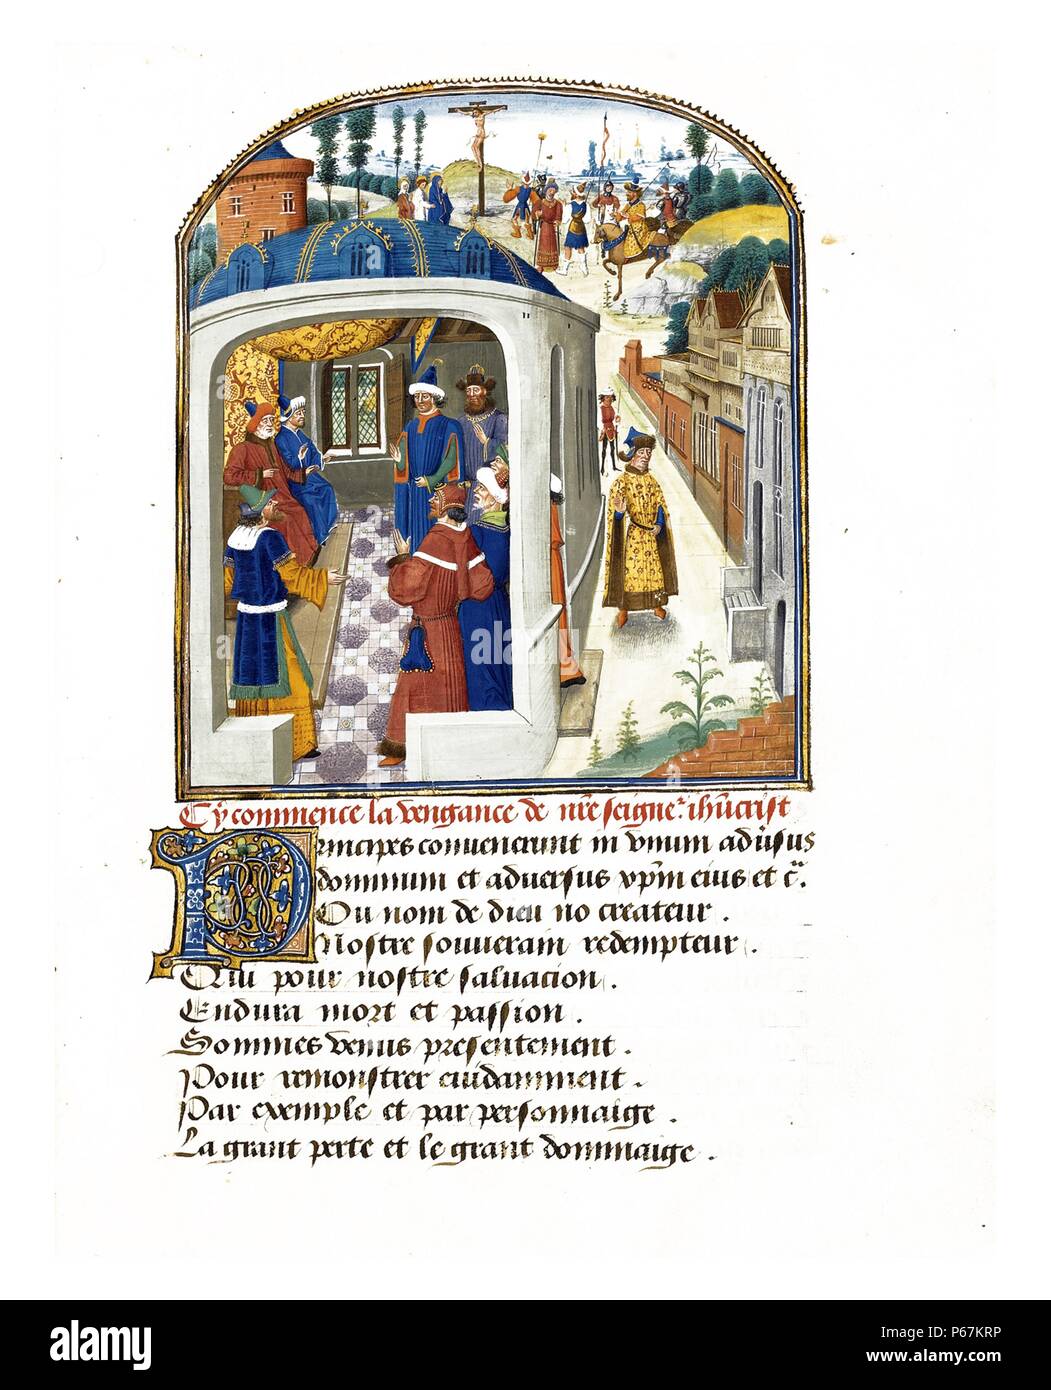 Cy commence la vengance de nr̃e seignẽ. ihũcrist
Principes convenerunt in vnum adũsus
dominum et adversus xp̃m eius et c̃.
Ou nom de dieu no createur.
Nostre souverain redempteur.
Qui pour nostre saluacion.
Endura mort et passion.
Sommes venus presentement.
Pour remonstrer euidamment.
Par exemple et par personnaige.
La grant perte et le grant dommaige.
alamy
alamy
a
a
a
a
alamy
Image ID: P67KRP
www.alamy.com